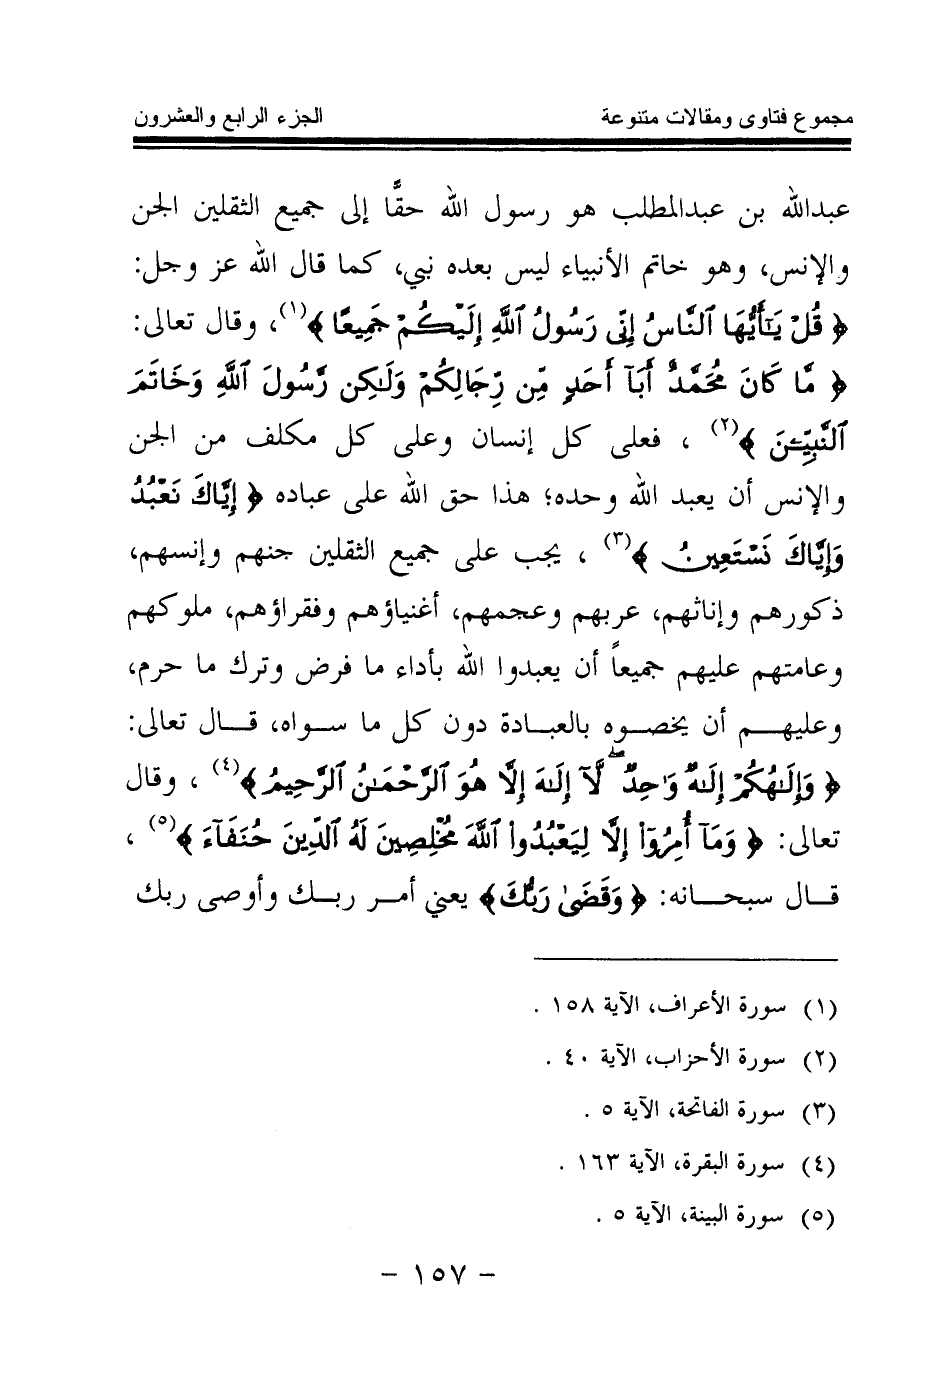 مجموع فتاوى ومقالات متنوعة الجزء الرابع والعشرون
عبدالله بن عبدالمطلب هو رسول الله حقًّا إلى جميع الثقلين الجن
والإنس، وهو خاتم الأنبياء ليس بعده نبي، كما قال الله عز وجل:
﴿ قُلْ يَٰٓأَيُّهَا ٱلنَّاسُ إِنِّى رَسُولُ ٱللَّهِ إِلَيْكُمْ جَمِيعًا ﴾(١)، وقال تعالى:
﴿ مَّا كَانَ مُحَمَّدٌ أَبَآ أَحَدٍ مِّن رِّجَالِكُمْ وَلَٰكِن رَّسُولَ ٱللَّهِ وَخَاتَمَ
ٱلنَّبِيِّـۧنَ ﴾(٢) ، فعلى كل إنسان وعلى كل مكلف من الجن
والإنس أن يعبد الله وحده؛ هذا حق الله على عباده ﴿ إِيَّاكَ نَعْبُدُ
وَإِيَّاكَ نَسْتَعِينُ ﴾(٣) ، يجب على جميع الثقلين جنهم وإنسهم،
ذكورهم وإناثهم، عربهم وعجمهم، أغنياؤهم وفقراؤهم، ملوكهم
وعامتهم عليهم جميعاً أن يعبدوا الله بأداء ما فرض وترك ما حرم،
وعليهـم أن يخصـوه بالعبـادة دون كل ما سـواه، قـال تعالى:
﴿ وَإِلَٰهُكُمْ إِلَٰهٌ وَٰحِدٌ ۖ لَّآ إِلَٰهَ إِلَّا هُوَ ٱلرَّحْمَٰنُ ٱلرَّحِيمُ ﴾(٤) ، وقال
تعالى: ﴿ وَمَآ أُمِرُوٓا۟ إِلَّا لِيَعْبُدُوا۟ ٱللَّهَ مُخْلِصِينَ لَهُ ٱلدِّينَ حُنَفَآءَ ﴾(٥) ،
قـال سبحـانه: ﴿ وَقَضَىٰ رَبُّكَ﴾ يعني أمـر ربـك وأوصى ربك
(١) سورة الأعراف، الآية ١٥٨ .
(٢) سورة الأحزاب، الآية ٤٠ .
(٣) سورة الفاتحة، الآية ٥ .
(٤) سورة البقرة، الآية ١٦٣ .
(٥) سورة البينة، الآية ٥ .
- ١٥٧ -